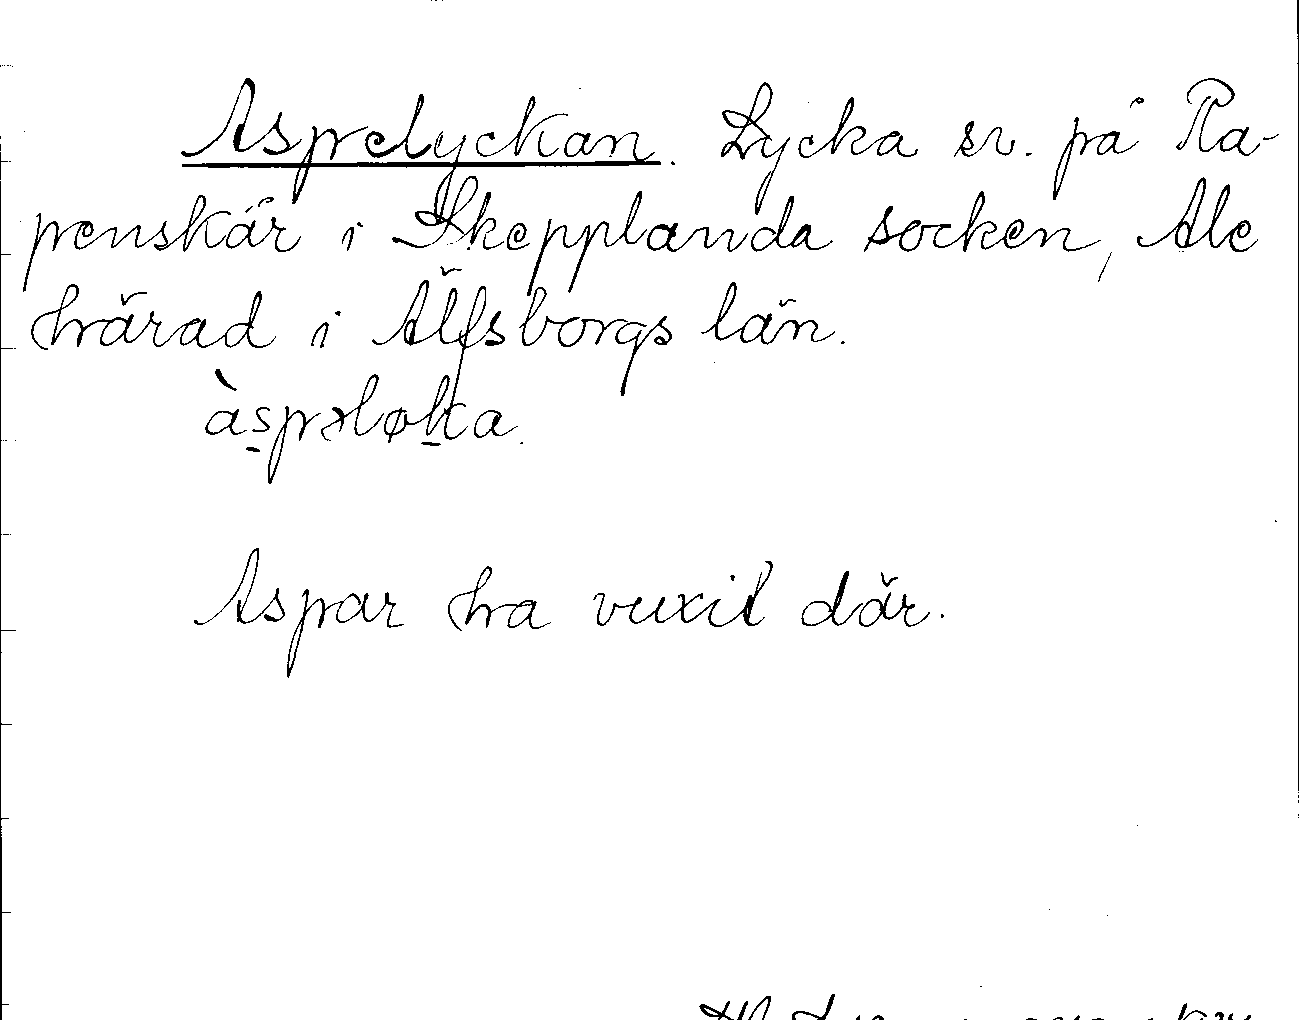 Aspelyckan. Lycka sv. på Ra-
penskär i Skepplanda socken, Ale
härad i Älfsborgs län.
àspəløka.
Aspar ha vuxit där.